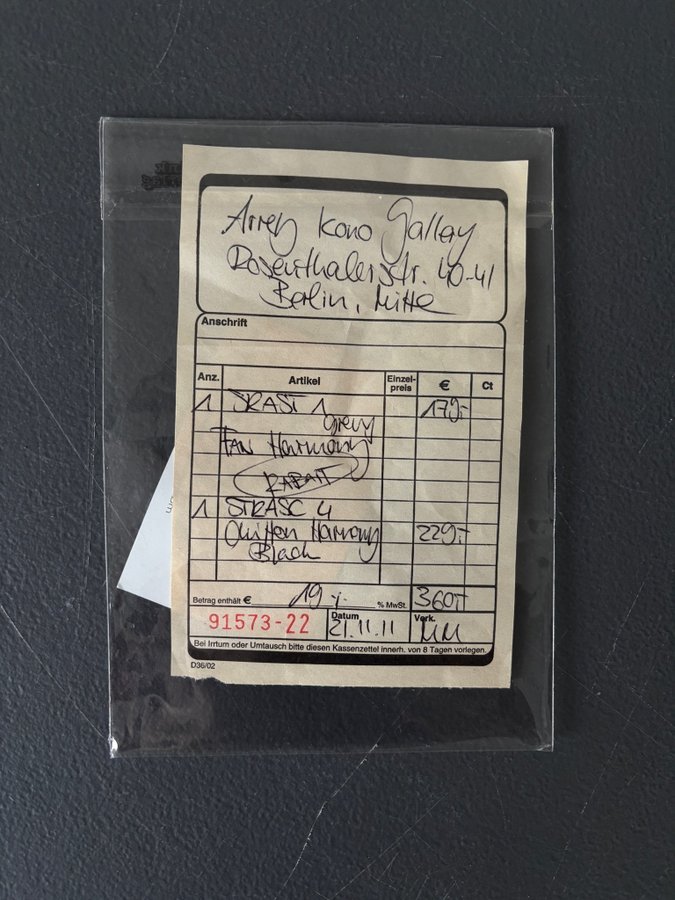 Arrey Kono Gallay
Rosenthalerstr. 40-41
Berlin, Mitte
Anschrift
Anz. Artikel Einzel-preis € Ct
1 SRAST 1 179,-
grey
Harmony
RABATT
1 STRASC 4
Harmony 229,-
Black
Betrag enthält € 19,- % MwSt. 360,-
91573-22 Datum 21.11.11 Verk. MM
Bei Irrtum oder Umtausch bitte diesen Kassenzettel innerh. von 8 Tagen vorlegen.
D36/02